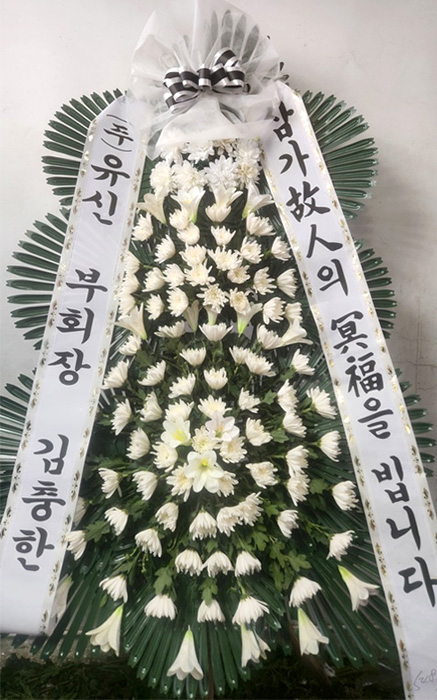 삼가故人의 冥福을 빕니다
(주)유신 부회장 김충한